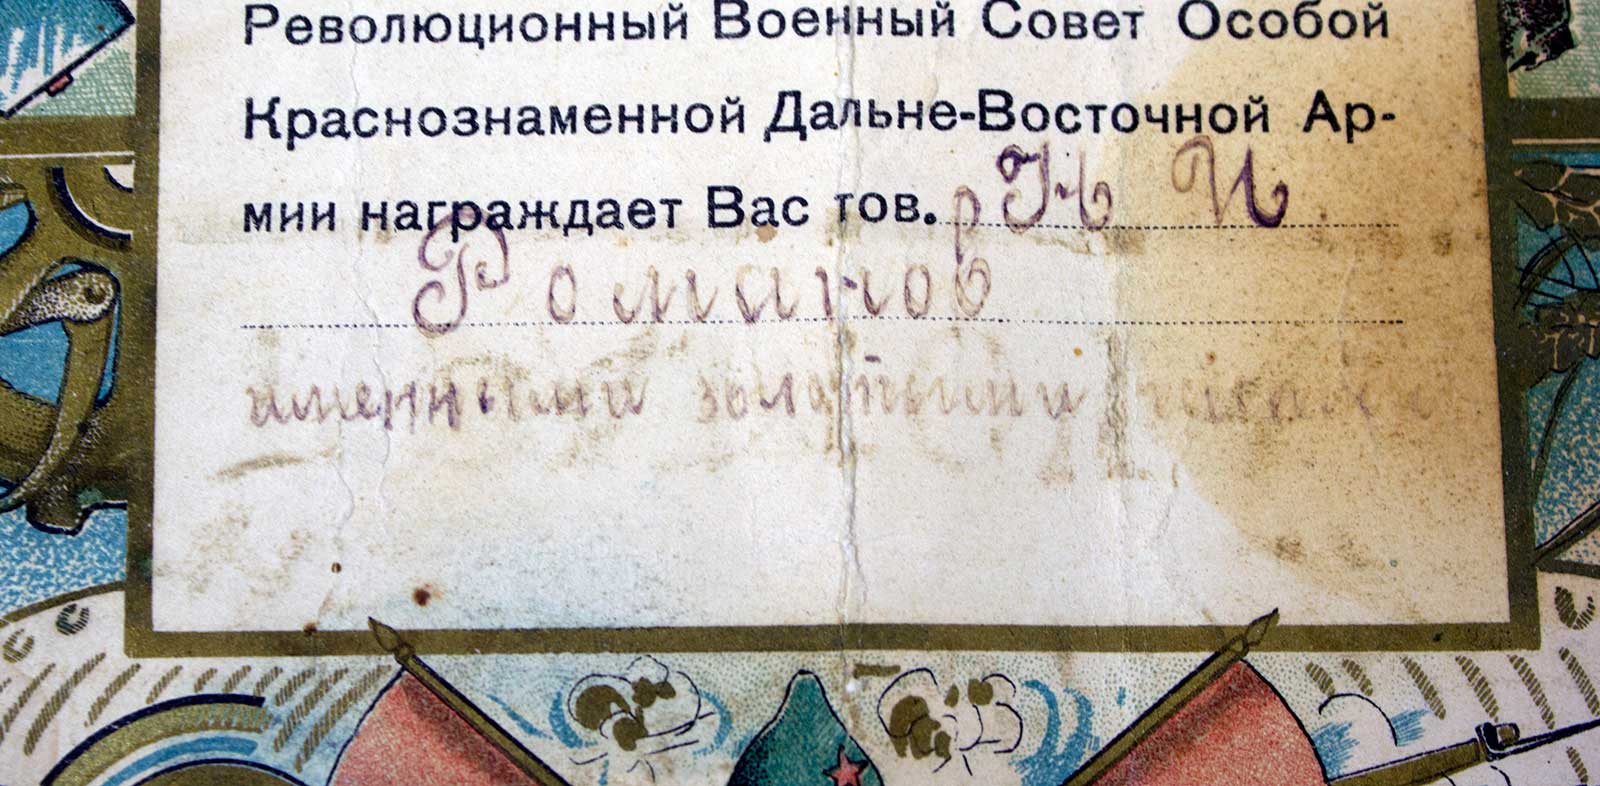 Революционный Военный Совет Особой
Краснознаменной Дальне-Восточной Ар-
мии награждает Вас тов. Н И
Романов
именными золотыми часами